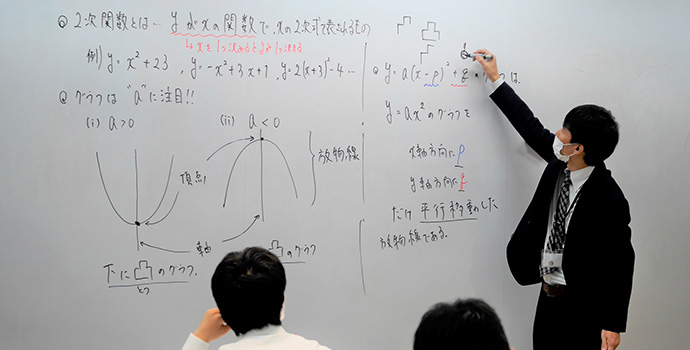 ◎ 2次関数とは… yがxの関数で、xの2次式で表されるもの
↳ xを1つ決めるとyが1つ決まる
例) y=x²+23 , y=-x²+3x+1 , y=2(x+3)²-4 …
◎ グラフは "a"に注目!!
(i) a>0
(ii) a<0
頂点
軸
放物線
下に凸のグラフ.
とつ
凸のグラフ
凸
◎ y=a(x-p)²+q のグラフは.
y=ax²のグラフを
x軸方向にp
y軸方向にq
だけ 平行移動した
放物線である.